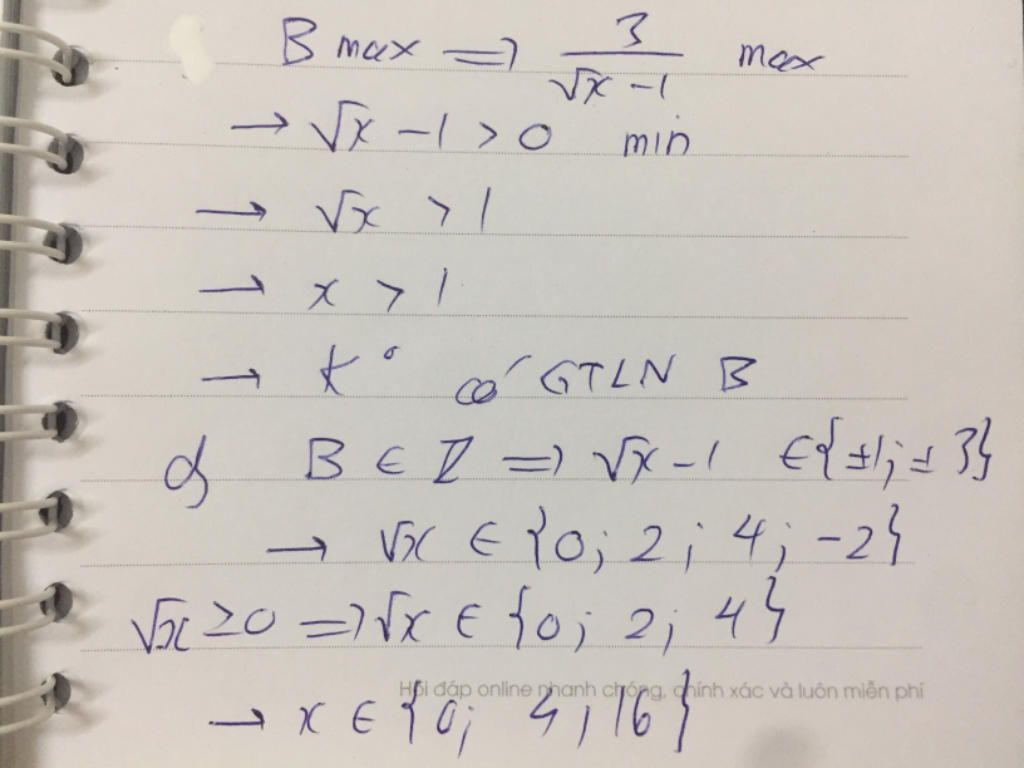 B max => 3/(√x - 1) max
→ √x - 1 > 0 min
→ √x > 1
→ x > 1
→ k° có GTLN B
d, B ∈ Z => √x - 1 ∈ {±1; ± 3}
→ √x ∈ {0; 2; 4; -2}
√x ≥ 0 => √x ∈ {0; 2; 4}
Hỏi đáp online nhanh chóng, chính xác và luôn miễn phí
→ x ∈ {0; 4; 16}